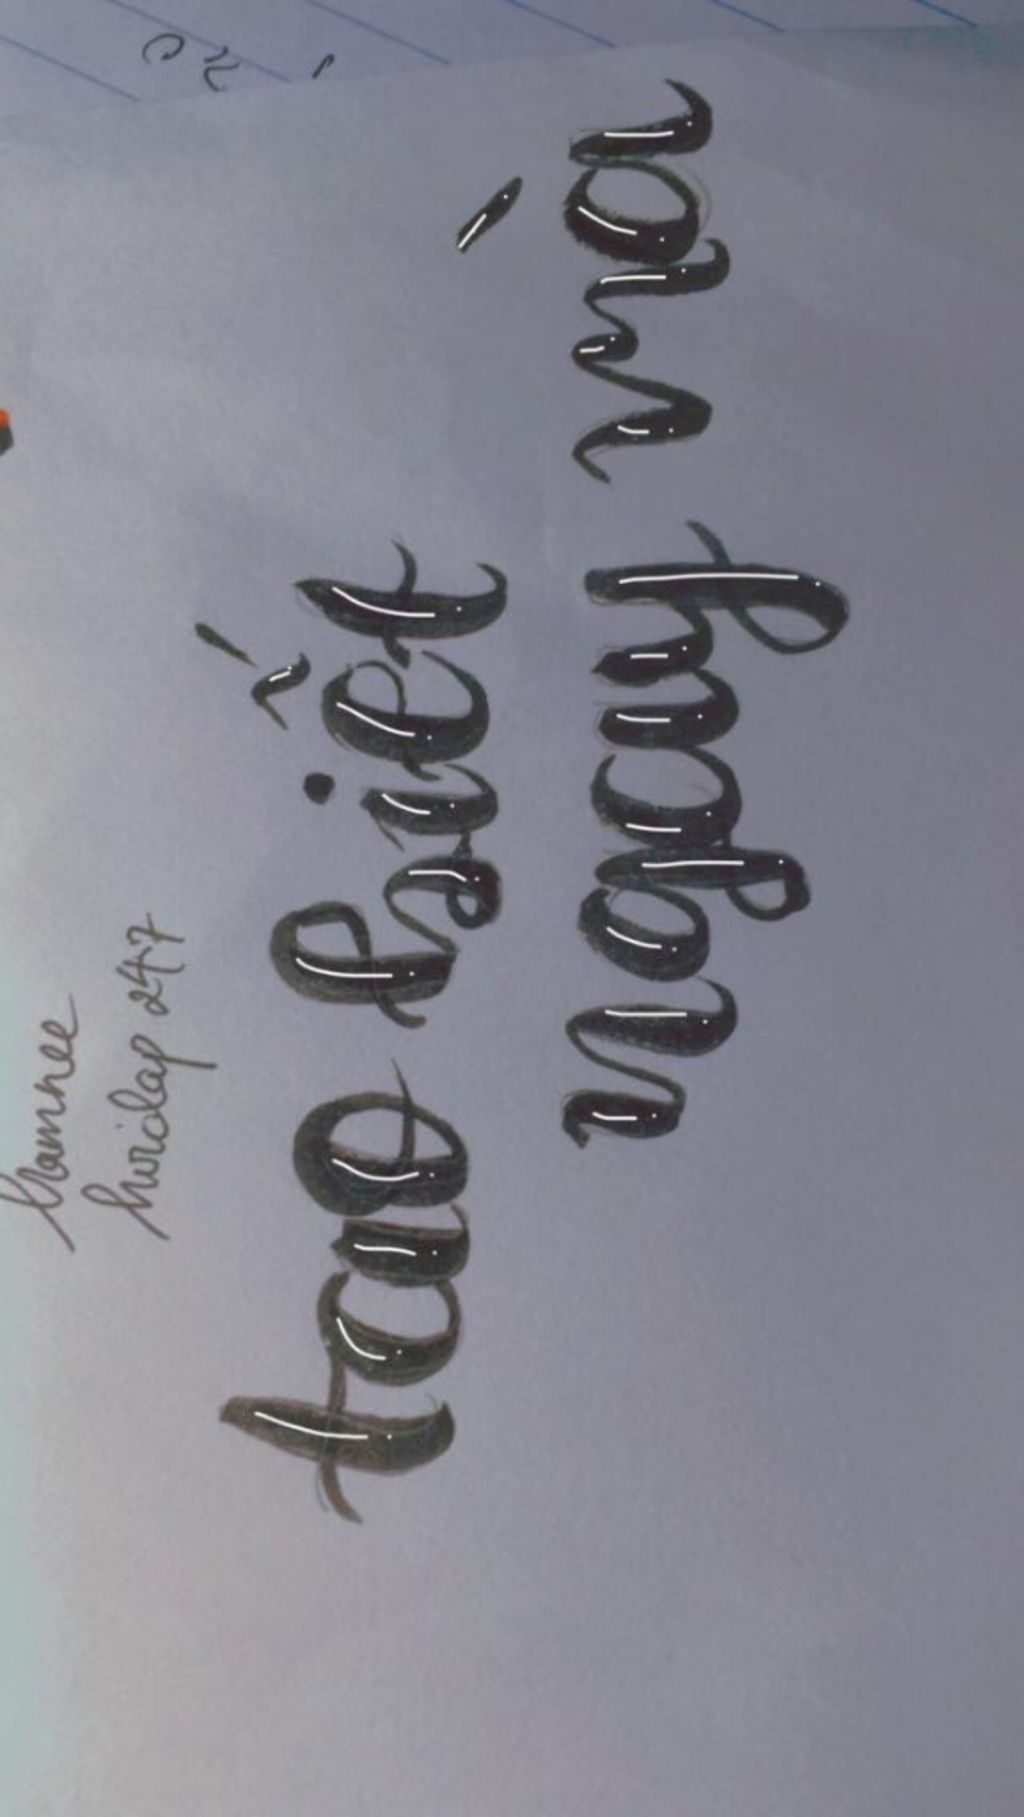 tramnee
hoidap 247
tao biết
ngay mà